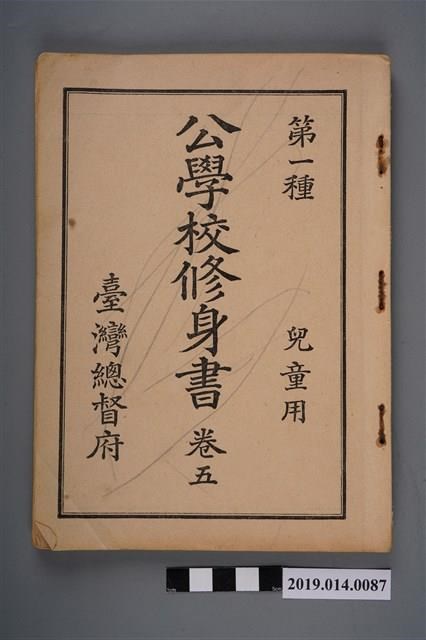 第一種 兒童用
公學校修身書 卷五
臺灣總督府
2019.014.0087